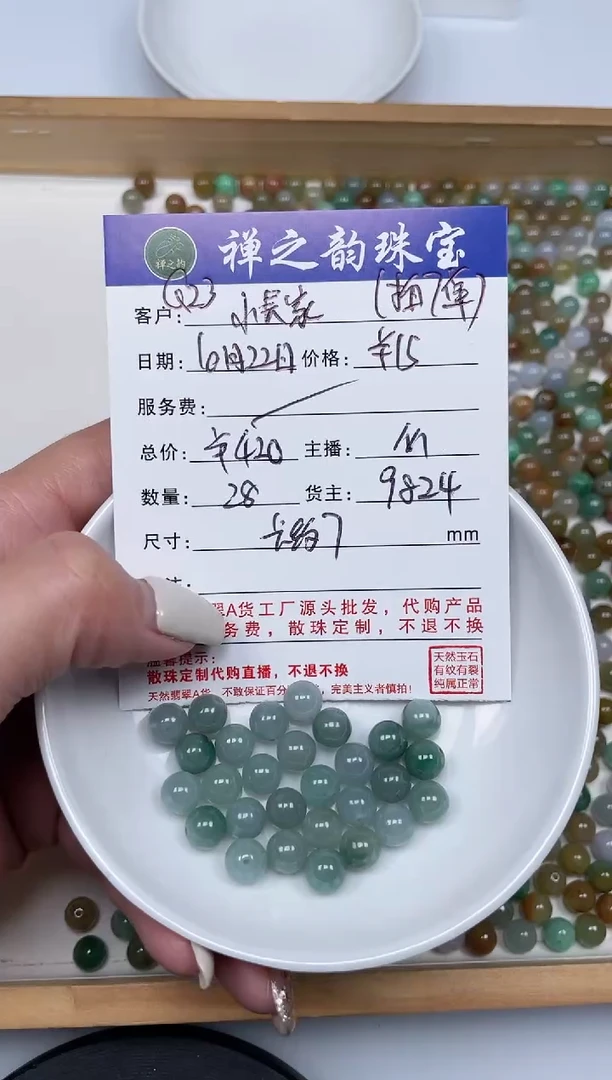 禅之韵珠宝
禅之韵
Q23
客户: 小吴家
日期: 10月22日 价格: ¥15
服务费:
总价: ¥420 主播: m
数量: 28 货主: 9824
尺寸: 卡约7 mm
A货工厂源头批发，代购产品
务费，散珠定制，不退不换
温馨提示:
散珠定制代购直播，不退不换
天然翡翠A货，不敢保证百分 ，完美主义者慎拍!
天然玉石
有纹有裂
纯属正常